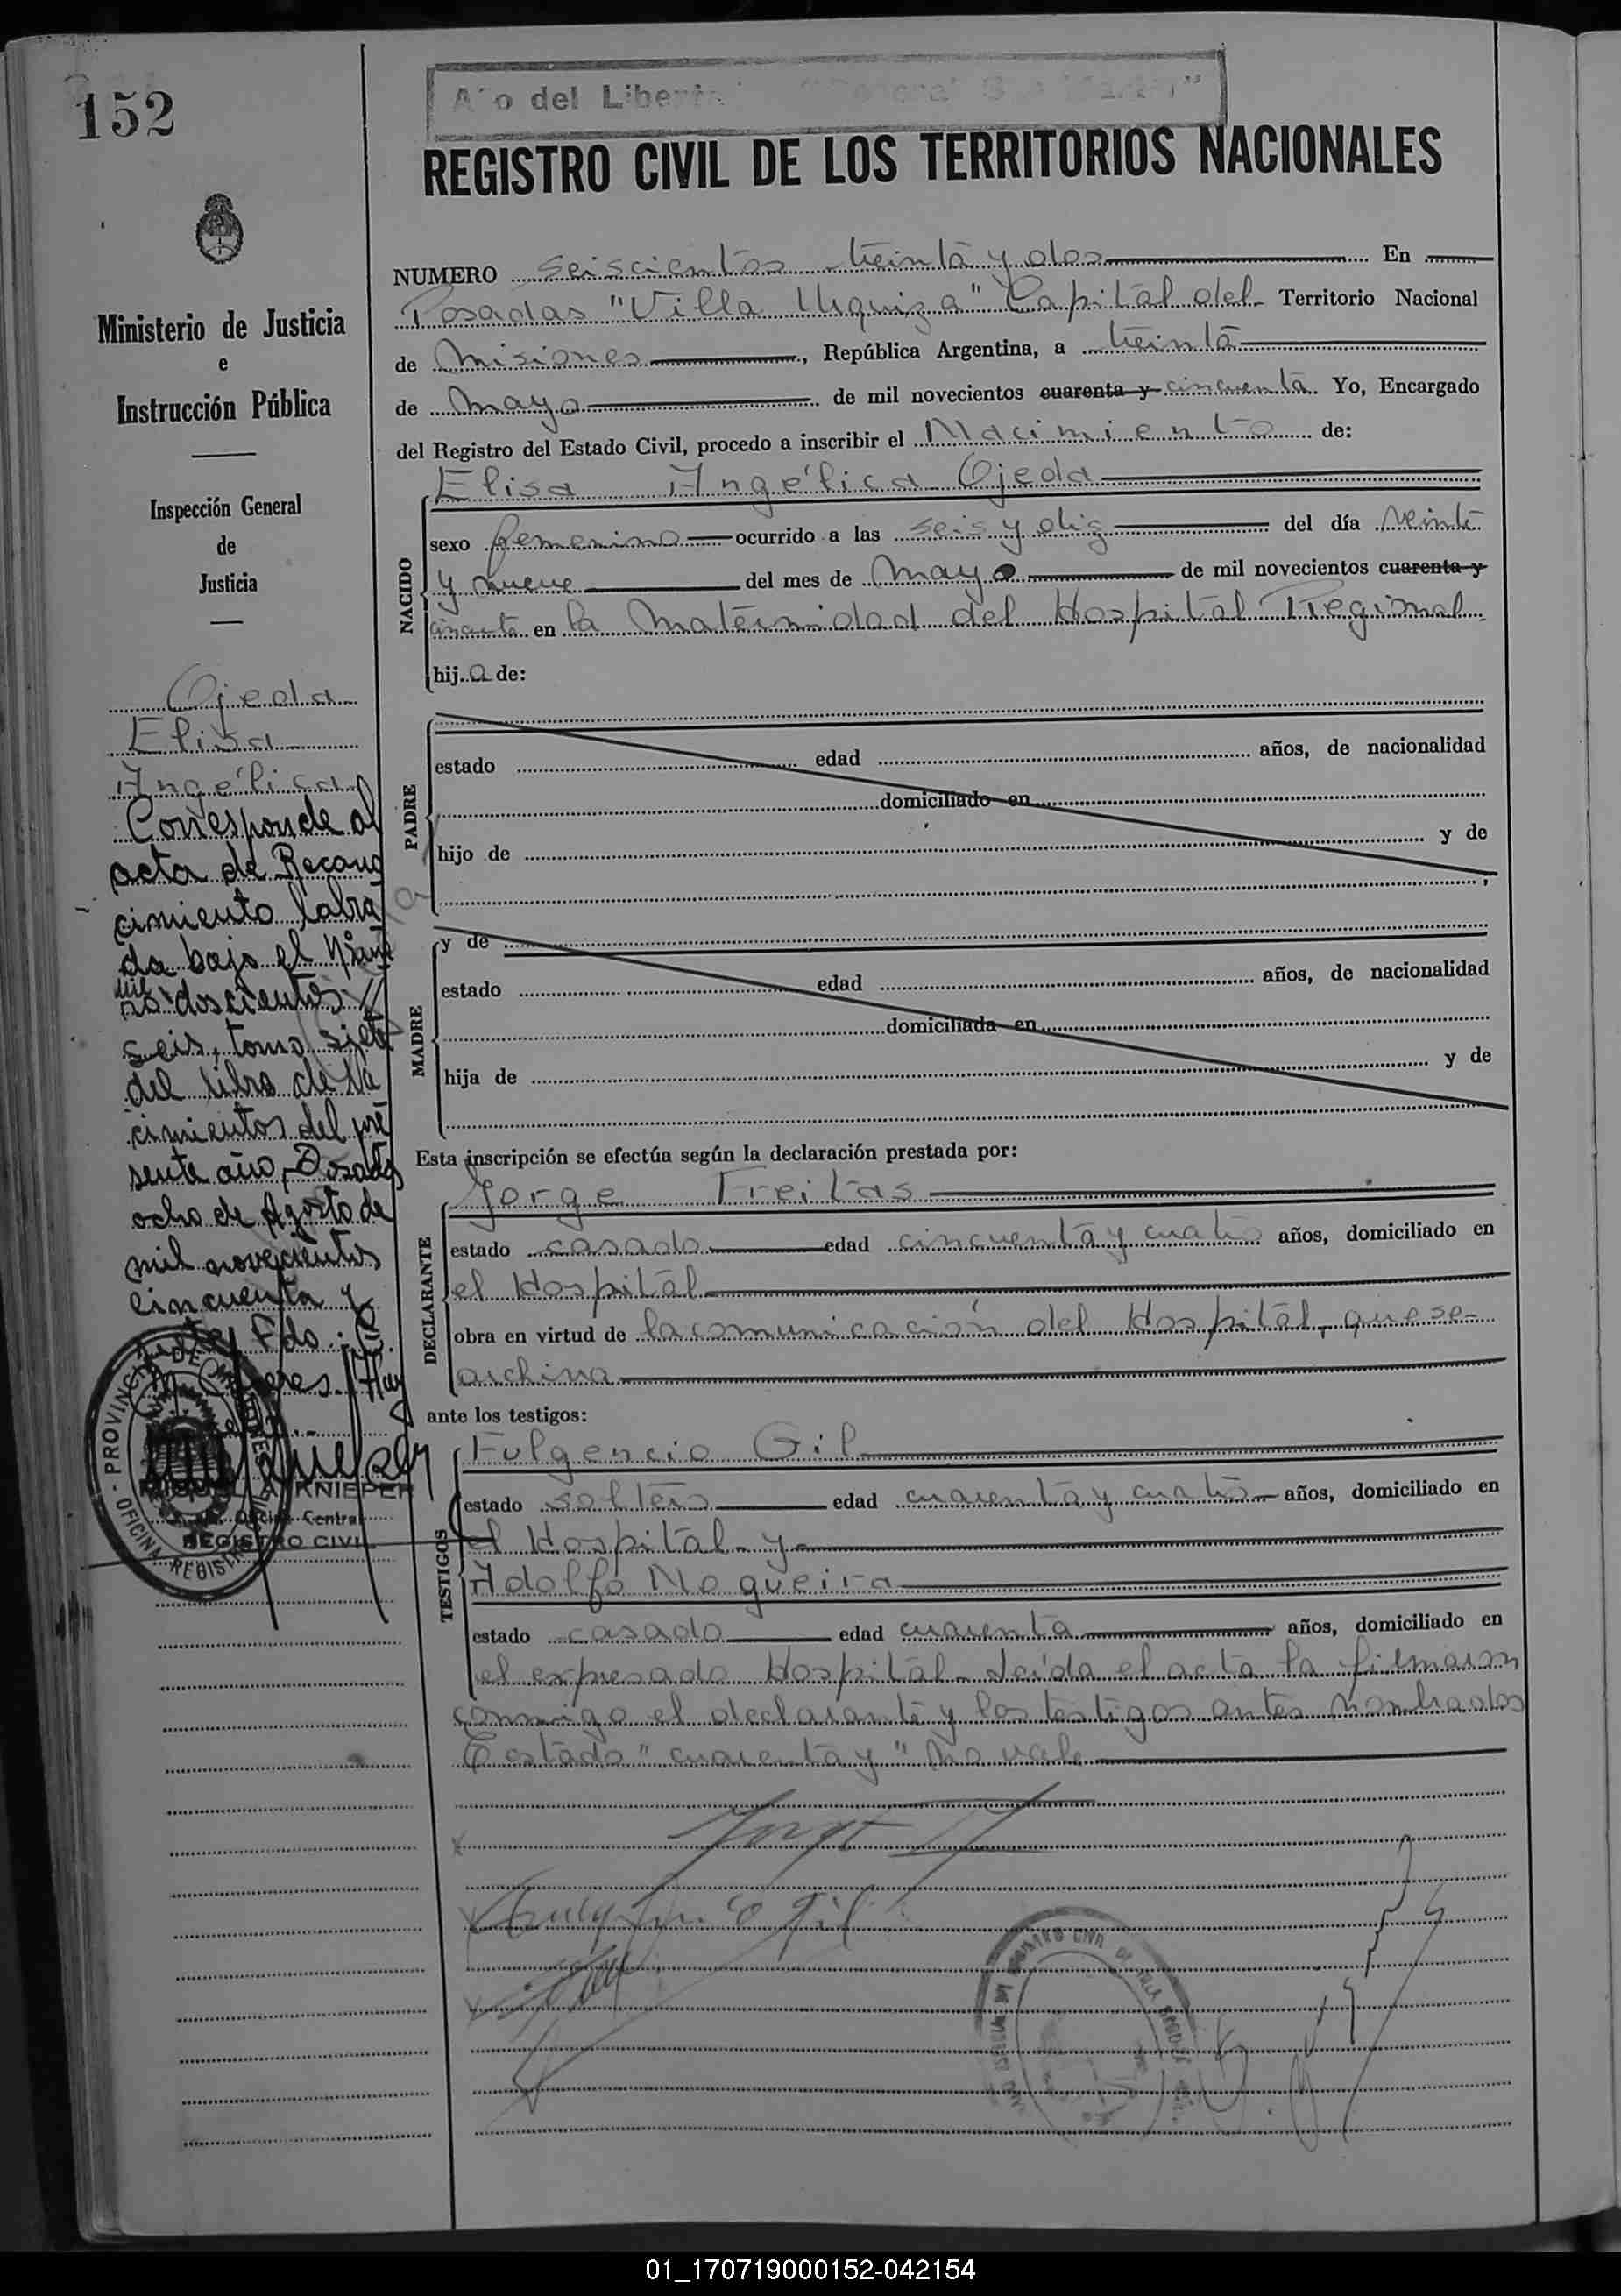 152
Año del Libertador "General San Martín"
REGISTRO CIVIL DE LOS TERRITORIOS NACIONALES
Ministerio de Justicia
e
Instrucción Pública
Inspección General
de
Justicia
Ojeda
Elisa
Angélica
Corresponde al
acta de Recono
cimiento labra
da bajo el núme
ro mil doscientos
seis, tomo siete
del libro de Na
cimientos del pre
sente año, Posadas
ocho de Agosto de
mil novecientos
cincuenta y
Fdo.:
PROVINCIA DE MISIONES
OFICINA REGISTRO CIVIL
KNIEPER
Oficina Central
REGISTRO CIVIL
NUMERO seiscientos treinta y dos En
Posadas "Villa Urquiza" Capital del Territorio Nacional
de Misiones, República Argentina, a treinta
de Mayo de mil novecientos cuarenta y cincuenta. Yo, Encargado
del Registro del Estado Civil, procedo a inscribir el Nacimiento de:
NACIDO
Elisa Angélica Ojeda
sexo femenino ocurrido a las seis y diez del día veinte
y nueve del mes de Mayo de mil novecientos cuarenta y
cincuenta en la Maternidad del Hospital Regional
hija de:
PADRE
estado edad años, de nacionalidad
domiciliado en
hijo de y de
MADRE
y de
estado edad años, de nacionalidad
domiciliada en
hija de y de
Esta inscripción se efectúa según la declaración prestada por:
DECLARANTE
Jorge Freitas
estado casado edad cincuenta y cuatro años, domiciliado en
el Hospital
obra en virtud de la comunicación del Hospital, que se
archiva
ante los testigos:
TESTIGOS
Fulgencio Gil
estado soltero edad cuarenta y cuatro años, domiciliado en
el Hospital y
Adolfo Nogueira
estado casado edad cuarenta años, domiciliado en
el expresado Hospital. Leída el acta la firmaron
conmigo el declarante y los testigos antes nombrados
Testado "cuarenta y" No vale
01_170719000152-042154